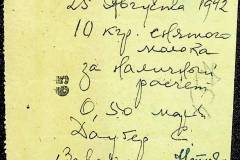 25 Августа 1942
10 кгр. снятого
молока
за наличный
расчет
0,50 марк
Даубер С
Завед